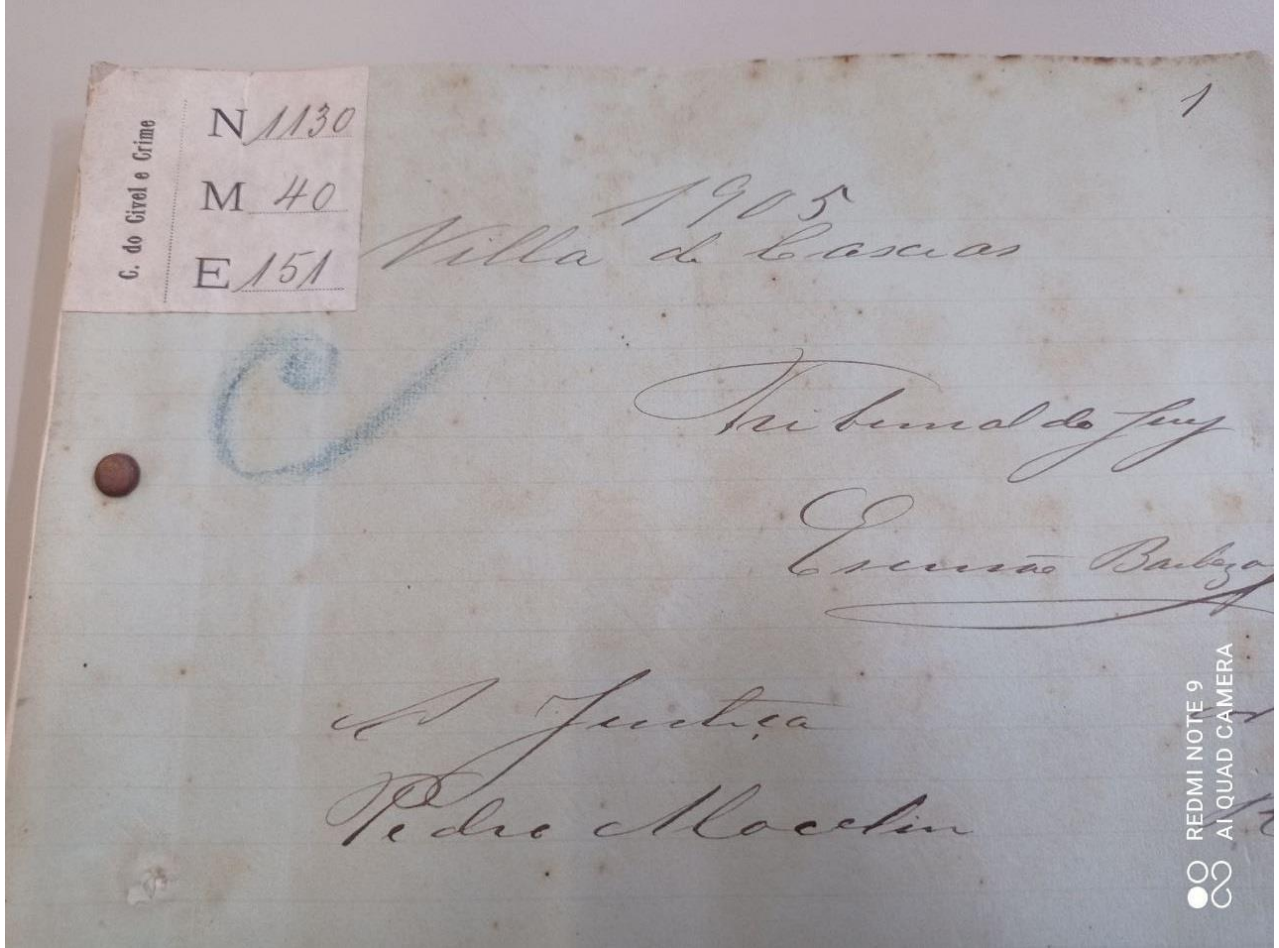 C. do Civel e Crime
N 1130
M 40
E 151
1
1905
Villa de Caxias
Tribunal do Jury
Escrivão Barboza
A Justiça
Pedro Mocelin
REDMI NOTE 9
AI QUAD CAMERA